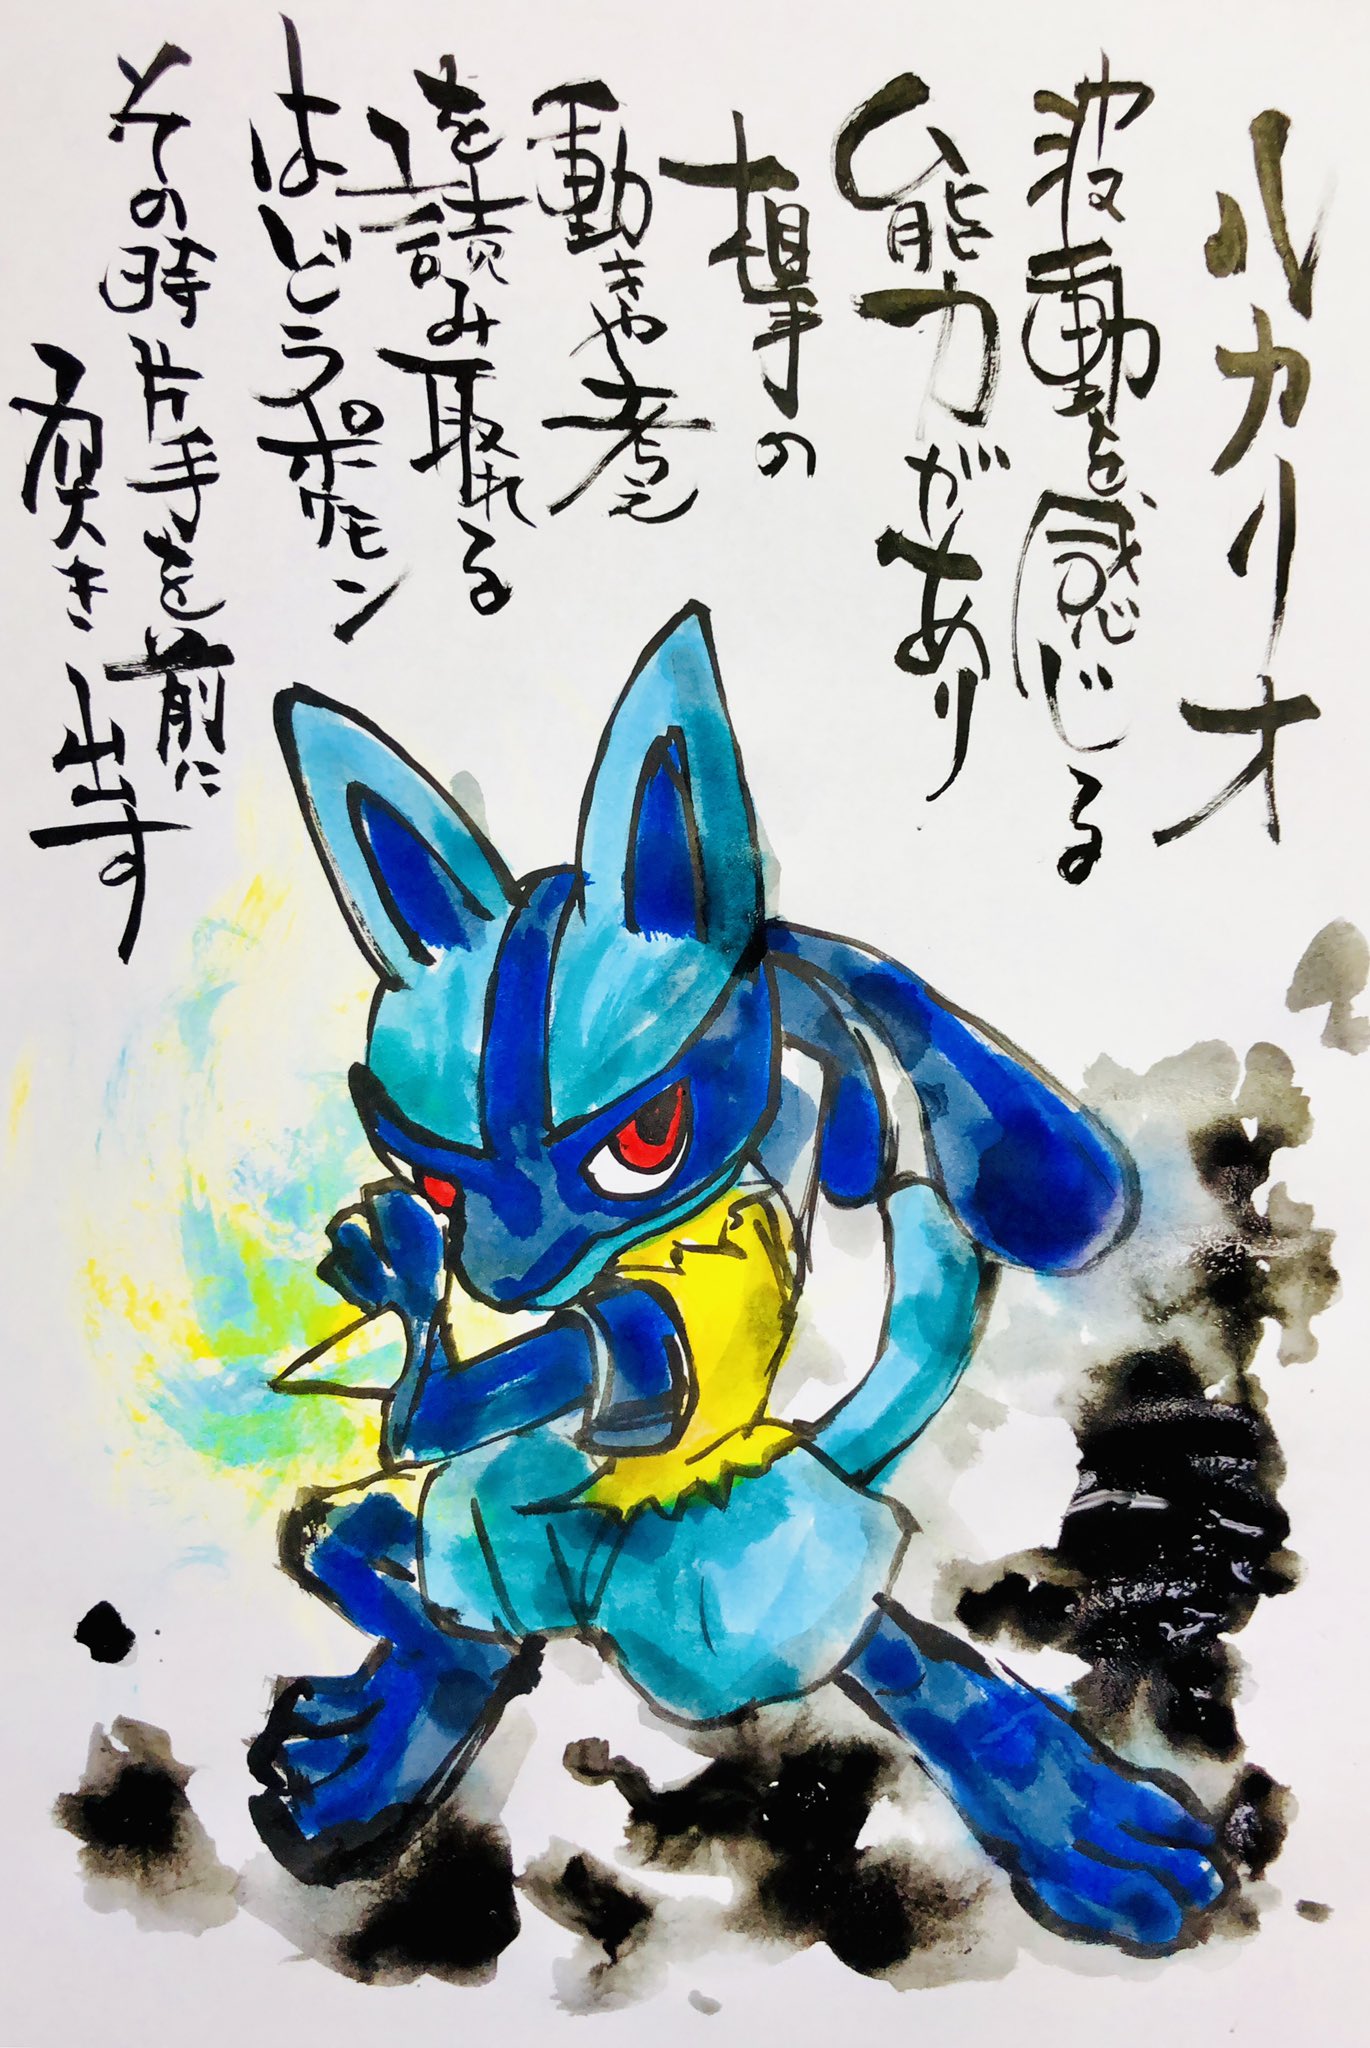 ルカリオ
波動を感じる
能力があり
相手の
動きや考え
を読み取れる
はどうポケモン
その時片手を前に
突き出す